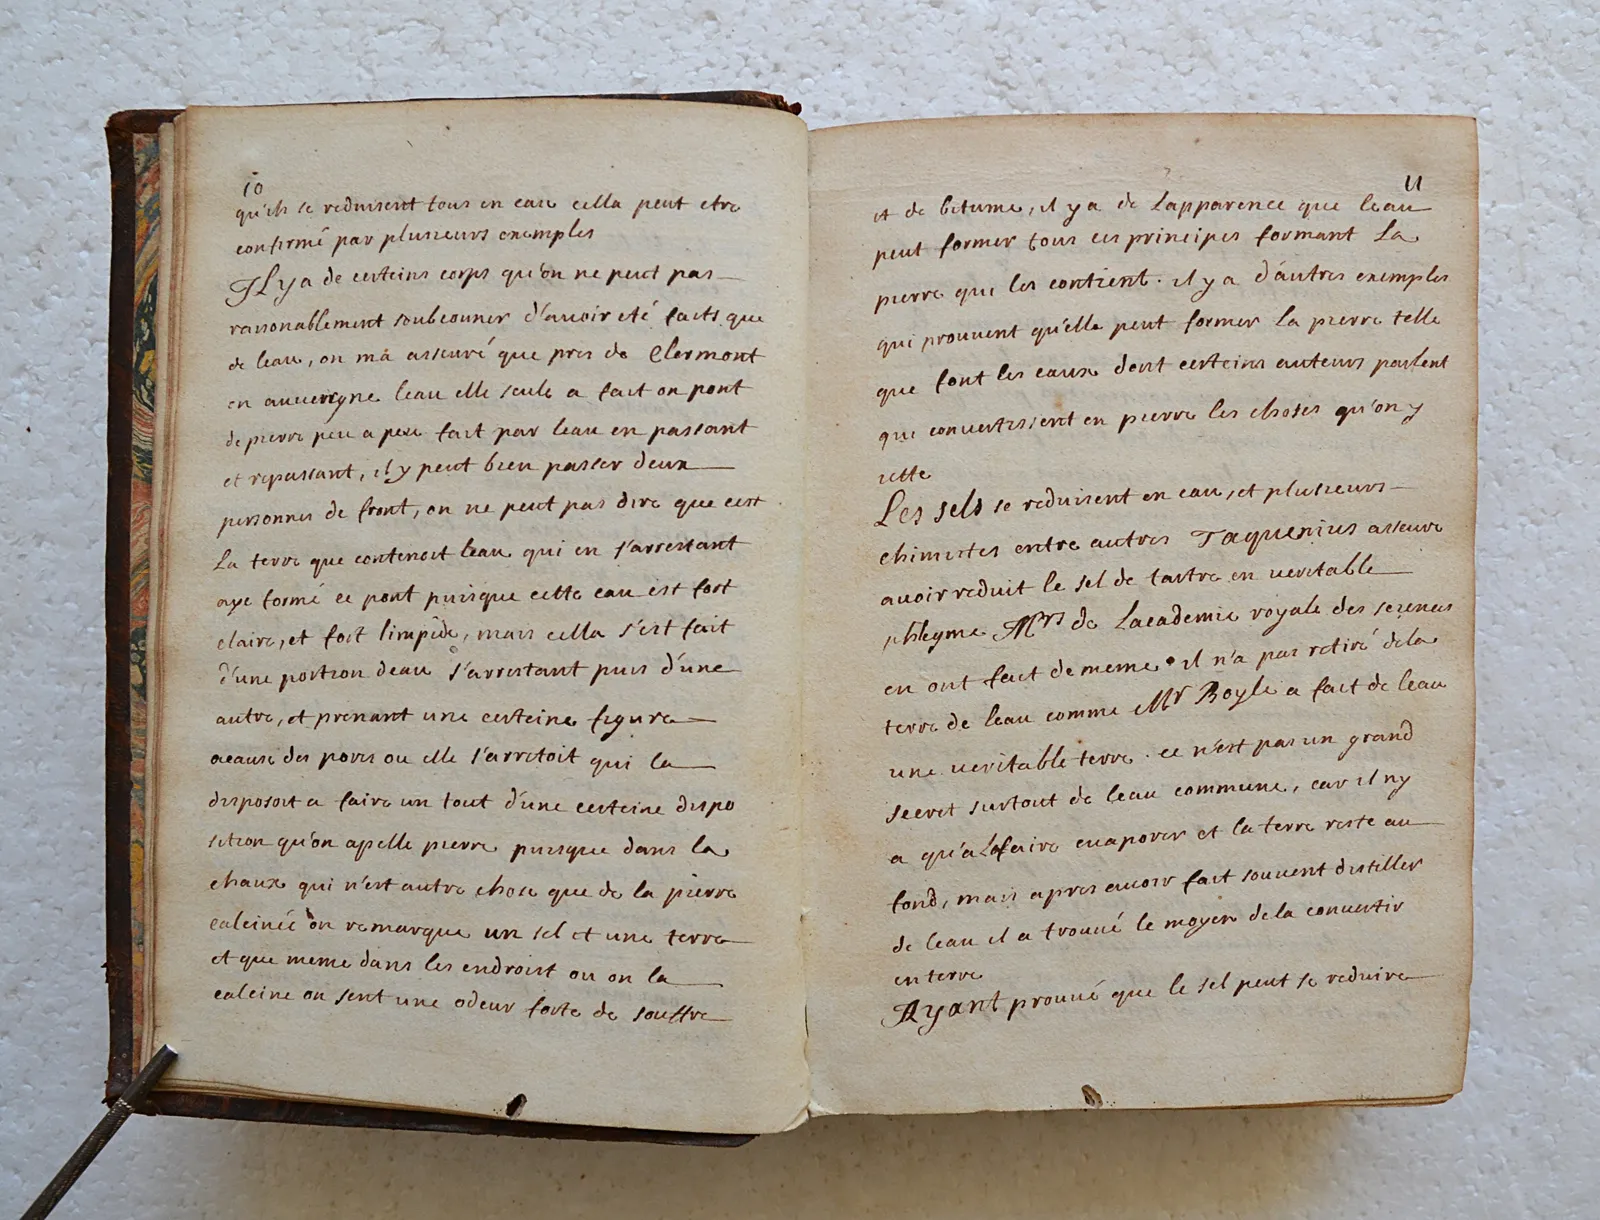 10
qu'ils se reduisent tous en eau cella peut etre
confirmé par plusieurs exemples
Il y a de certeins corps qu'on ne peut pas
raisonablement soubconner d'avoir eté faits que
de leau, on ma asseuré que pres de Clermont
en auvergne leau elle seule a fait on pont
de pierre peu a peu fait par leau en passant
et repassant, il y peut bien passer deux
personnes de front, on ne peut pas dire que cest
La terre que contenoit leau qui en s'arrestant
aye formé ce pont puisque cette eau est fort
claire, et fort limpide, mais cella s'est fait
d'une portion deau s'arrestant puis d'une
autre, et prenant une certeine figure
acause des pores ou elle s'arretoit qui la
disposoit a faire un tout d'une certeine dispo
sition qu'on apelle pierre puisque dans la
chaux qui n'est autre chose que de la pierre
calcinée on remarque un sel et une terre
et que meme dans les endroist ou on la
calcine on sent une odeur forte de souffre
11
et de bitume, il y a de Lapparence que leau
peut former tous ces principes formant La
pierre qui les contient. il y a d'autres exemples
qui prouvent qu'elle peut former La pierre telle
que font les eaux dont certeins auteurs parlent
qui convertissent en pierre les choses qu'on y
iette
Les sels se reduisent en eau, et plusieurs
chimistes entre autres Taquenius asseure
avoir reduit le sel de tartre en veritable
phlegme Mrs de Lacademie royale des sciences
en ont fait de meme. il n'a pas retiré de la
terre de leau comme Mr Boyle a fait de leau
une veritable terre. ce n'est pas un grand
secret surtout de leau commune, car il ny
a qu'a La faire evaporer et la terre reste au
fond, mais apres avoir fait souvent distiller
de leau il a trouvé le moyen de la convertir
en terre
Ayant prouvé que le sel peut se reduire